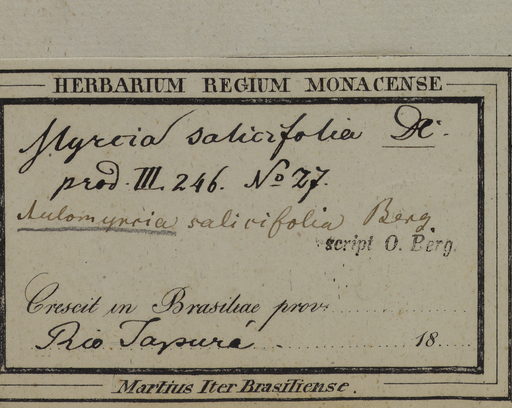 HERBARIUM REGIUM MONACENSE
Myrcia salicifolia DC.
prod. III. 246. No 27.
Aulomyrcia salicifolia Berg
script O. Berg.
Crescit in Brasiliae prov.
Rio Japurá 18
Martius Iter Brasiliense.